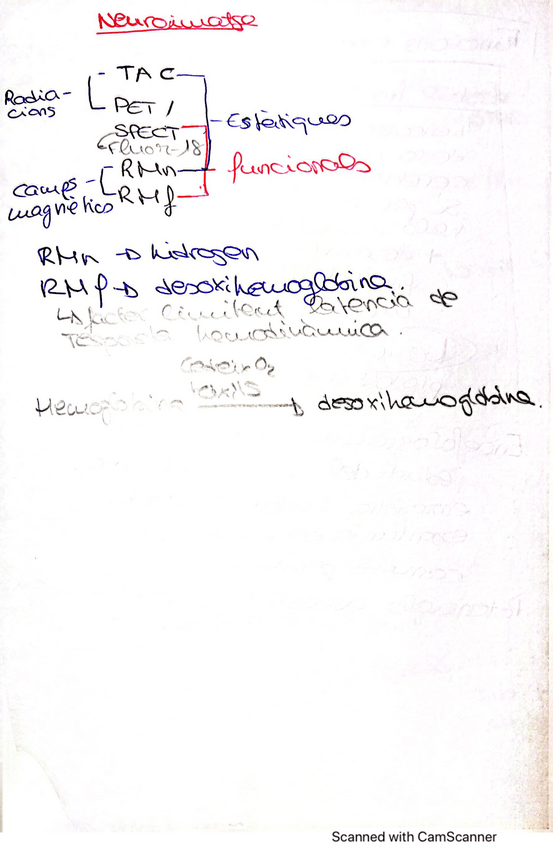 Neuroimatge
Radia-
cions
TAC
PET /
SPECT
Fluor-18
Camps
magnètics
RMn
RMf
Estàtiques
funcionals
RMn → hidrogen
RMf → desoxihemoglobina.
↳ factor limitant latencia de
resposta hemodinàmica.
O2
teixits
Hemoglobina → desoxihemoglobina.
Scanned with CamScanner